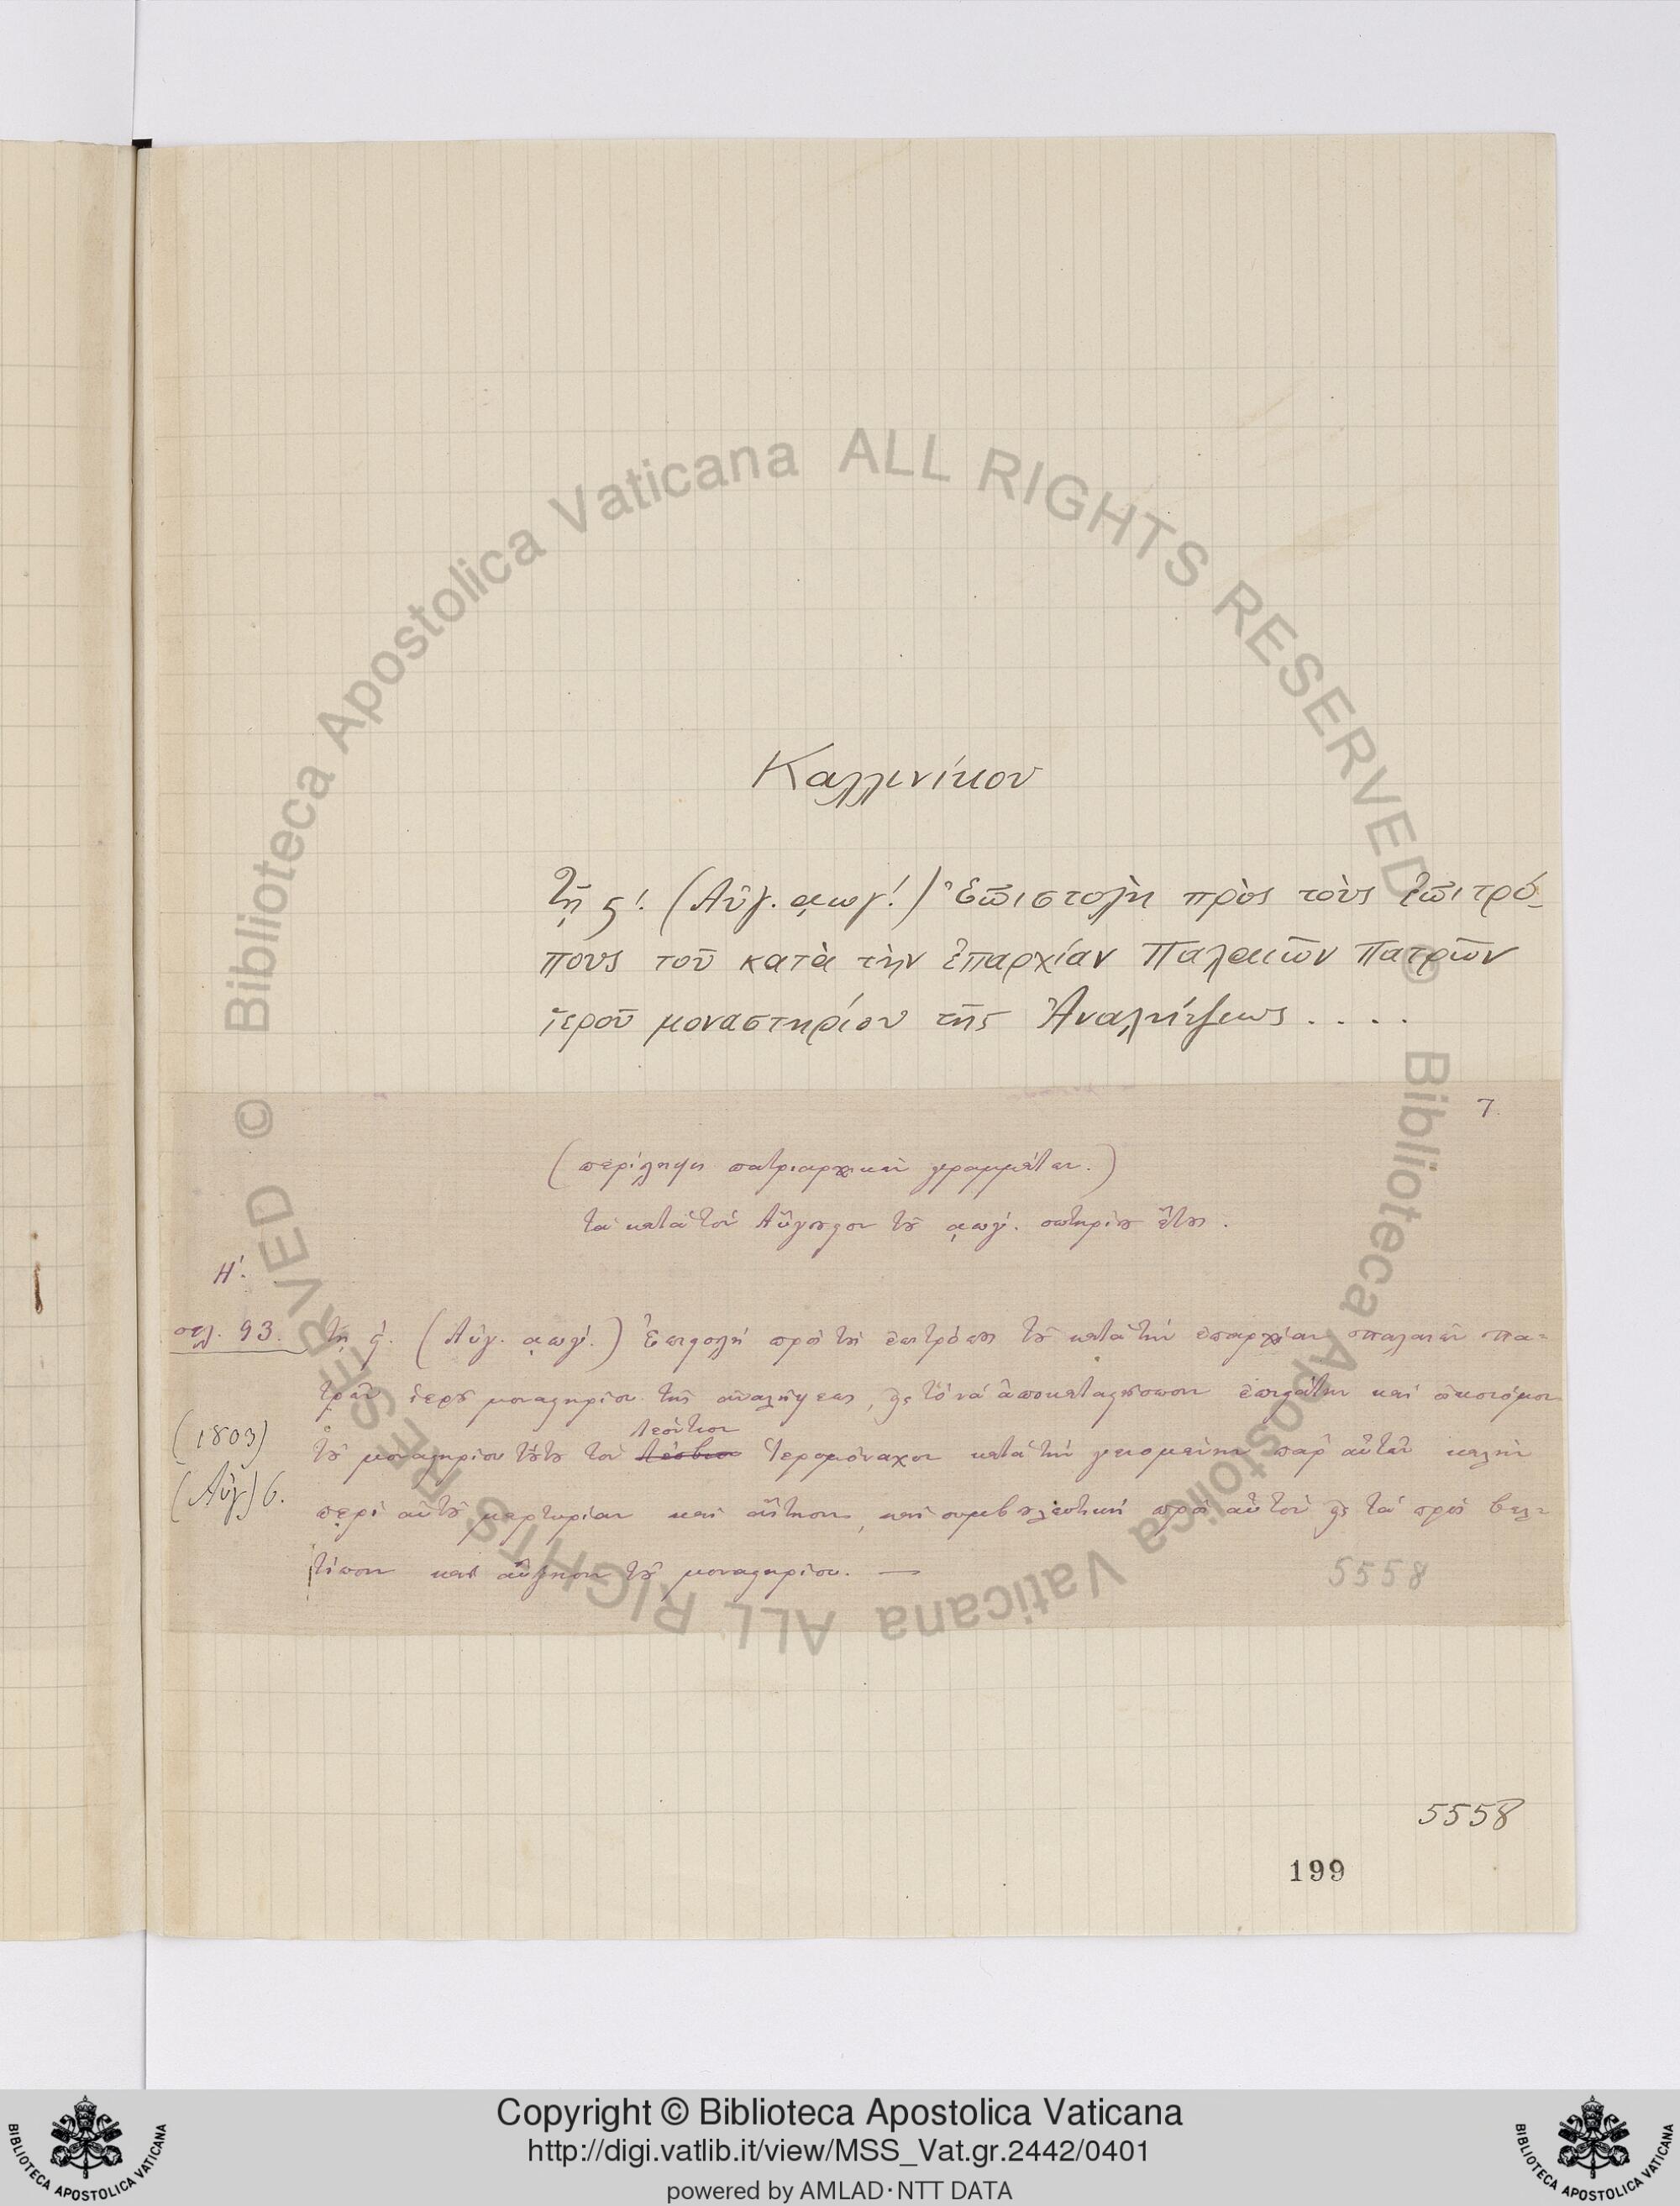 Καλλινίκου
Τῇ ς΄. (Αὐγ. ͵αωγ΄.) Ἐπιστολὴ πρὸς τοὺς ἐπιτρό-
πους τοῦ κατὰ τὴν ἐπαρχίαν Παλαιῶν Πατρῶν
ἱεροῦ μοναστηρίου τῆς Ἀναλήψεως . . . .
7.
(περίληψις πατριαρχικῶν γραμμάτων.)
τὰ κατὰ τὸν Αὔγουστον τοῦ ͵αωγ΄. σωτηρίου ἔτους.
Η΄.
σελ. 93. τῇ ς΄. (Αὐγ. ͵αωγ΄.) Ἐπιστολὴ πρὸς τοὺς ἐπιτρόπους τοῦ κατὰ τὴν ἐπαρχίαν παλαιῶν πα-
τρῶν ἱεροῦ μοναστηρίου τῆς ἀναλήψεως, εἰς τὸ νὰ ἀποκαταστήσωσιν ἐπιστάτην καὶ οἰκονόμον
(1803)
Λεόντιον
τοῦ μοναστηρίου τούτου τὸν Λέσβιον Ἱερομόναχον κατὰ τὴν γενομένην παρ' αὐτῶν καλὴν
(Αὐγ) 6.
περὶ αὐτοῦ μαρτυρίαν καὶ αἴτησιν, καὶ συμβουλευτικὴ πρὸς αὐτὸν εἰς τὰ πρὸς βελ-
τίωσιν καὶ αὔξησιν τοῦ μοναστηρίου. —
5558
5558
199
© Biblioteca Apostolica Vaticana ALL RIGHTS RESERVED
© Biblioteca Apostolica Vaticana ALL RIGHTS RESERVED
Copyright © Biblioteca Apostolica Vaticana
http://digi.vatlib.it/view/MSS_Vat.gr.2442/0401
powered by AMLAD·NTT DATA
BIBLIOTECA APOSTOLICA VATICANA
BIBLIOTECA APOSTOLICA VATICANA